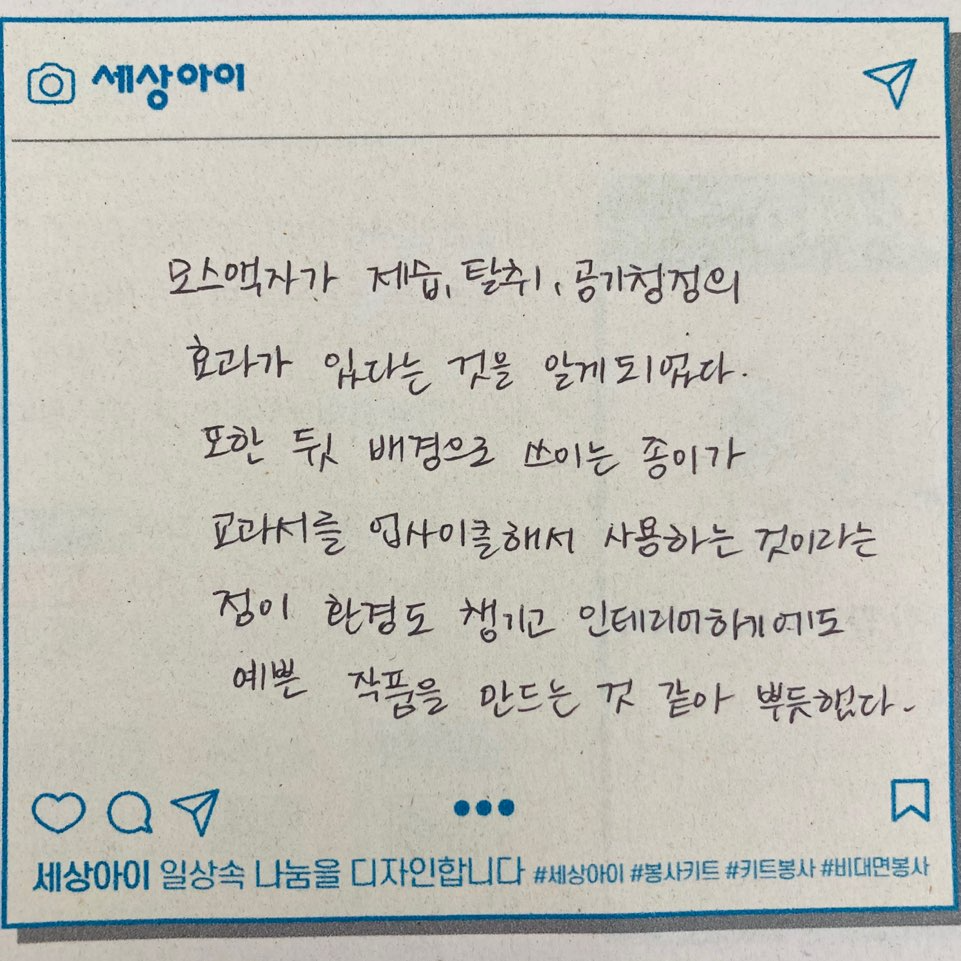 세상아이
모스액자가 제습, 탈취, 공기청정의
효과가 있다는 것을 알게되었다.
또한 뒷 배경으로 쓰이는 종이가
교과서를 업사이클해서 사용하는 것이라는
점이 환경도 챙기고 인테리어하기에도
예쁜 작품을 만드는 것 같아 뿌듯했다.
세상아이 일상속 나눔을 디자인합니다 #세상아이 #봉사키트 #키트봉사 #비대면봉사